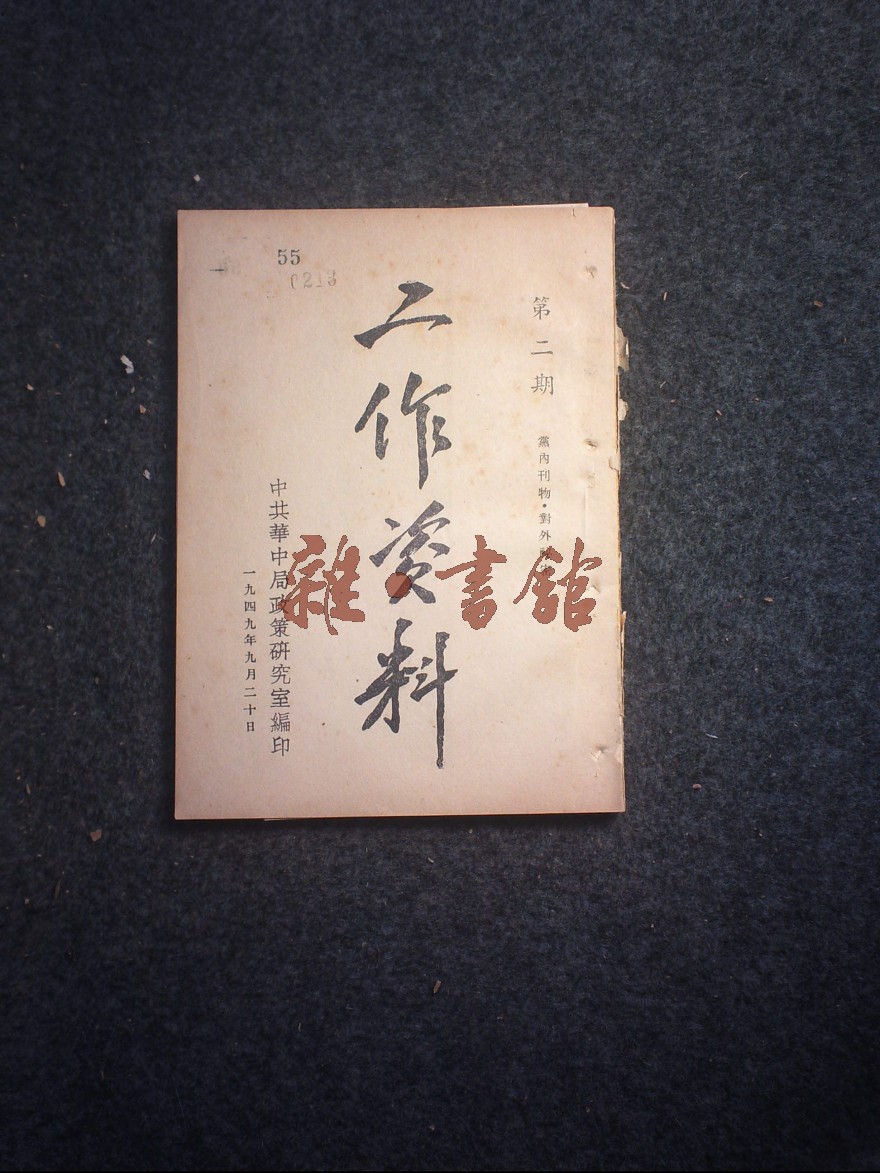 第二期
黨內刊物·對外
工作資料
中共華中局政策研究室編印
一九四九年九月二十日
55
0213
雜·書館